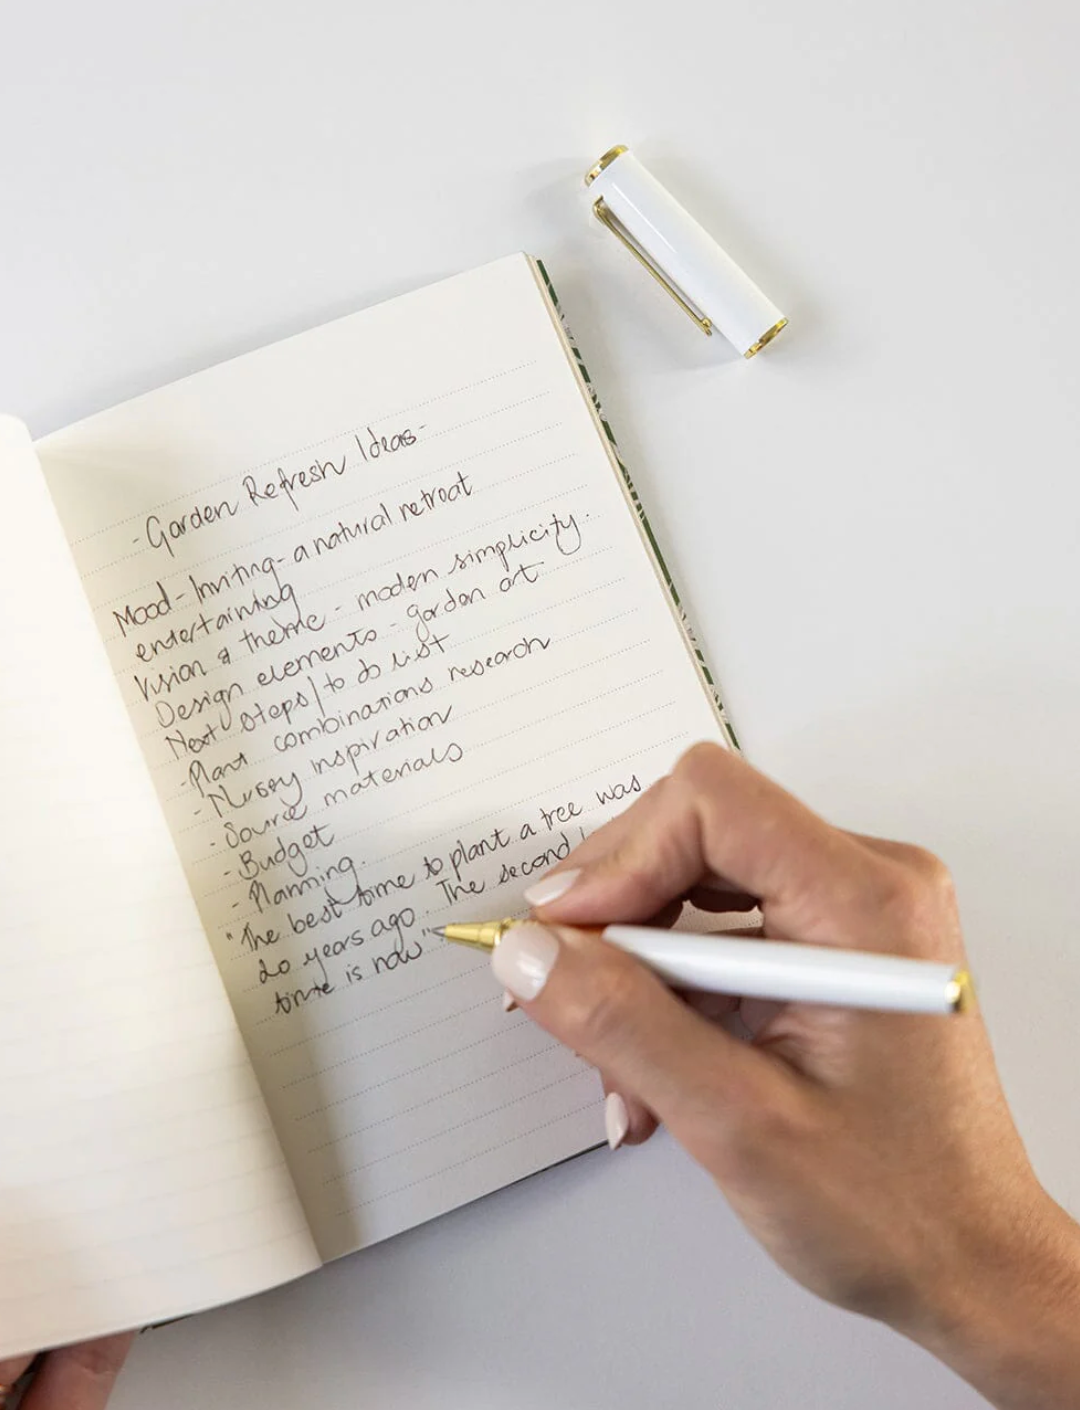 - Garden Refresh Ideas -
Mood - Inviting - a natural retreat
entertaining
Vision & theme - modern simplicity.
Design elements - garden art
Next steps / to do list
- Plant combinations research
- Nursey inspiration
- Source materials
- Budget
- Planning.
"The best time to plant a tree was
20 years ago. The second
time is now"